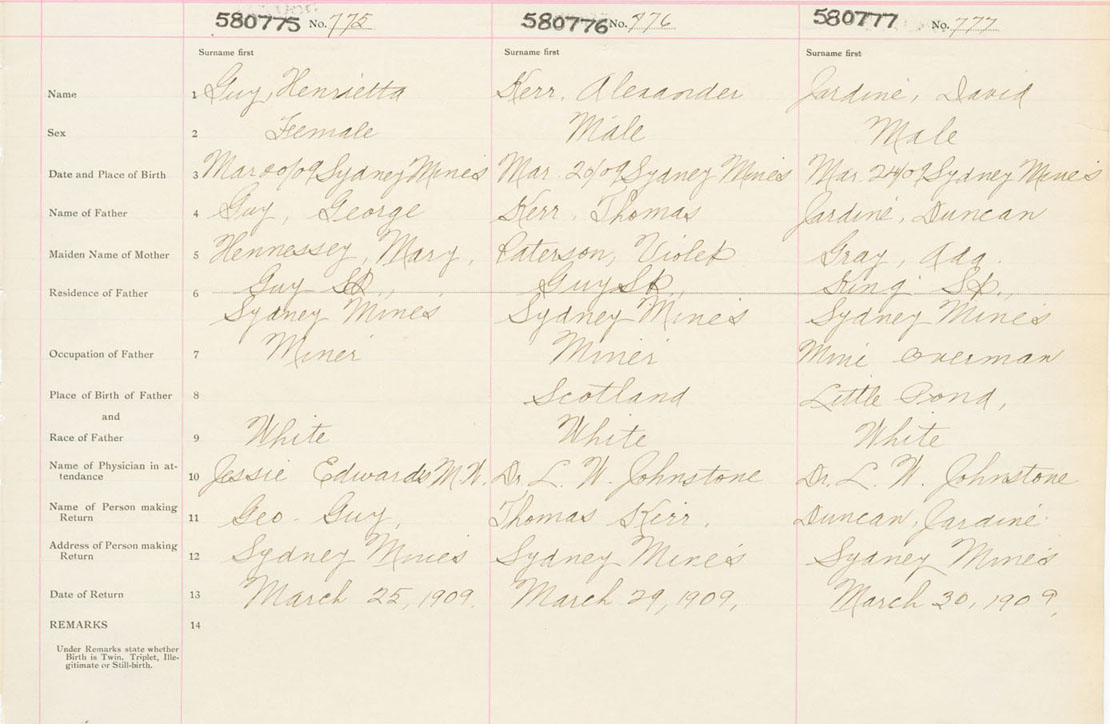 580775 No. 775 580776 No. 776 580777 No. 777
Surname first Surname first Surname first
Name 1 Guy, Henrietta Kerr, Alexander Jardine, David
Sex 2 Female Male Male
Date and Place of Birth 3 Sydney Mines Mar. Sydney Mines Mar. Sydney Mines
Name of Father 4 Guy, George Kerr, Thomas Jardine, Duncan
Maiden Name of Mother 5 Hennessey, Mary, Paterson, Violet Gray, Ada.
Residence of Father 6 Guy St., Guy St., King St.,
Sydney Mines Sydney Mines Sydney Mines
Occupation of Father 7 Miner Miner Mine Overman
Place of Birth of Father 8 Scotland Little Pond,
and
Race of Father 9 White White White
Name of Physician in at-
tendance 10 Jessie Edwards M.W. Dr. L. W. Johnstone Dr. L. W. Johnstone
Name of Person making
Return 11 Geo. Guy, Thomas Kerr. Duncan, Jardine
Address of Person making
Return 12 Sydney Mines Sydney Mines Sydney Mines
Date of Return 13 March 25, 1909. March 29, 1909, March 30, 1909,
REMARKS 14
Under Remarks state whether
Birth is Twin, Triplet, Ille-
gitimate or Still-birth.